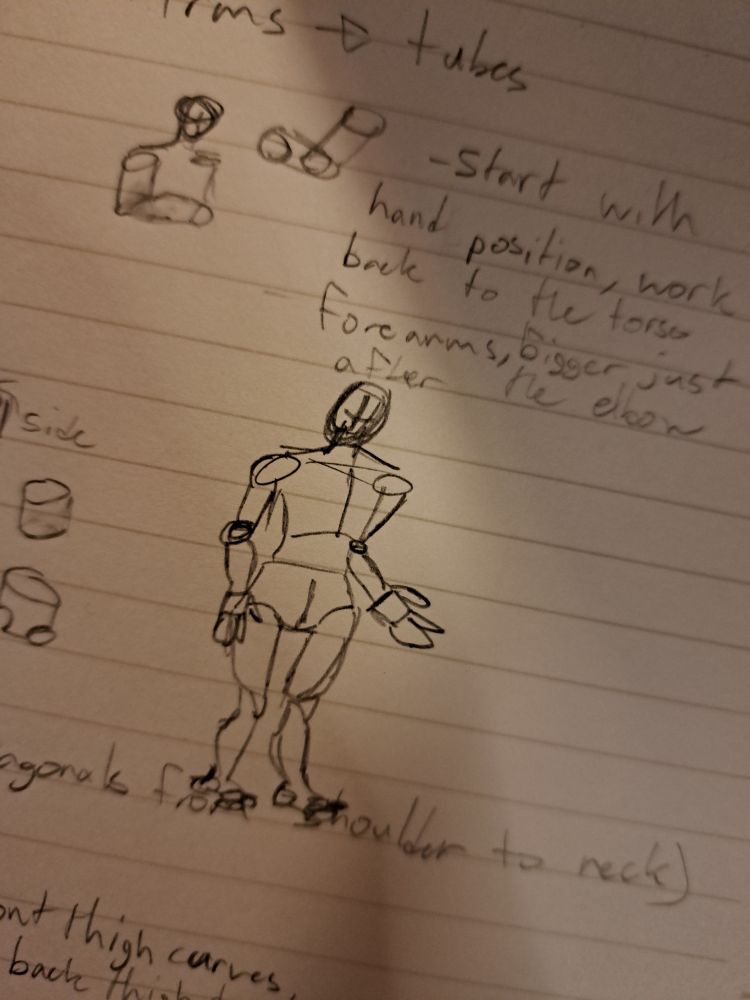 Arms → tubes
-Start with
hand position, work
back to the torso
forearms, bigger just
after the elbow
side
diagonals from shoulder to neck)
front thigh curves,
back thigh